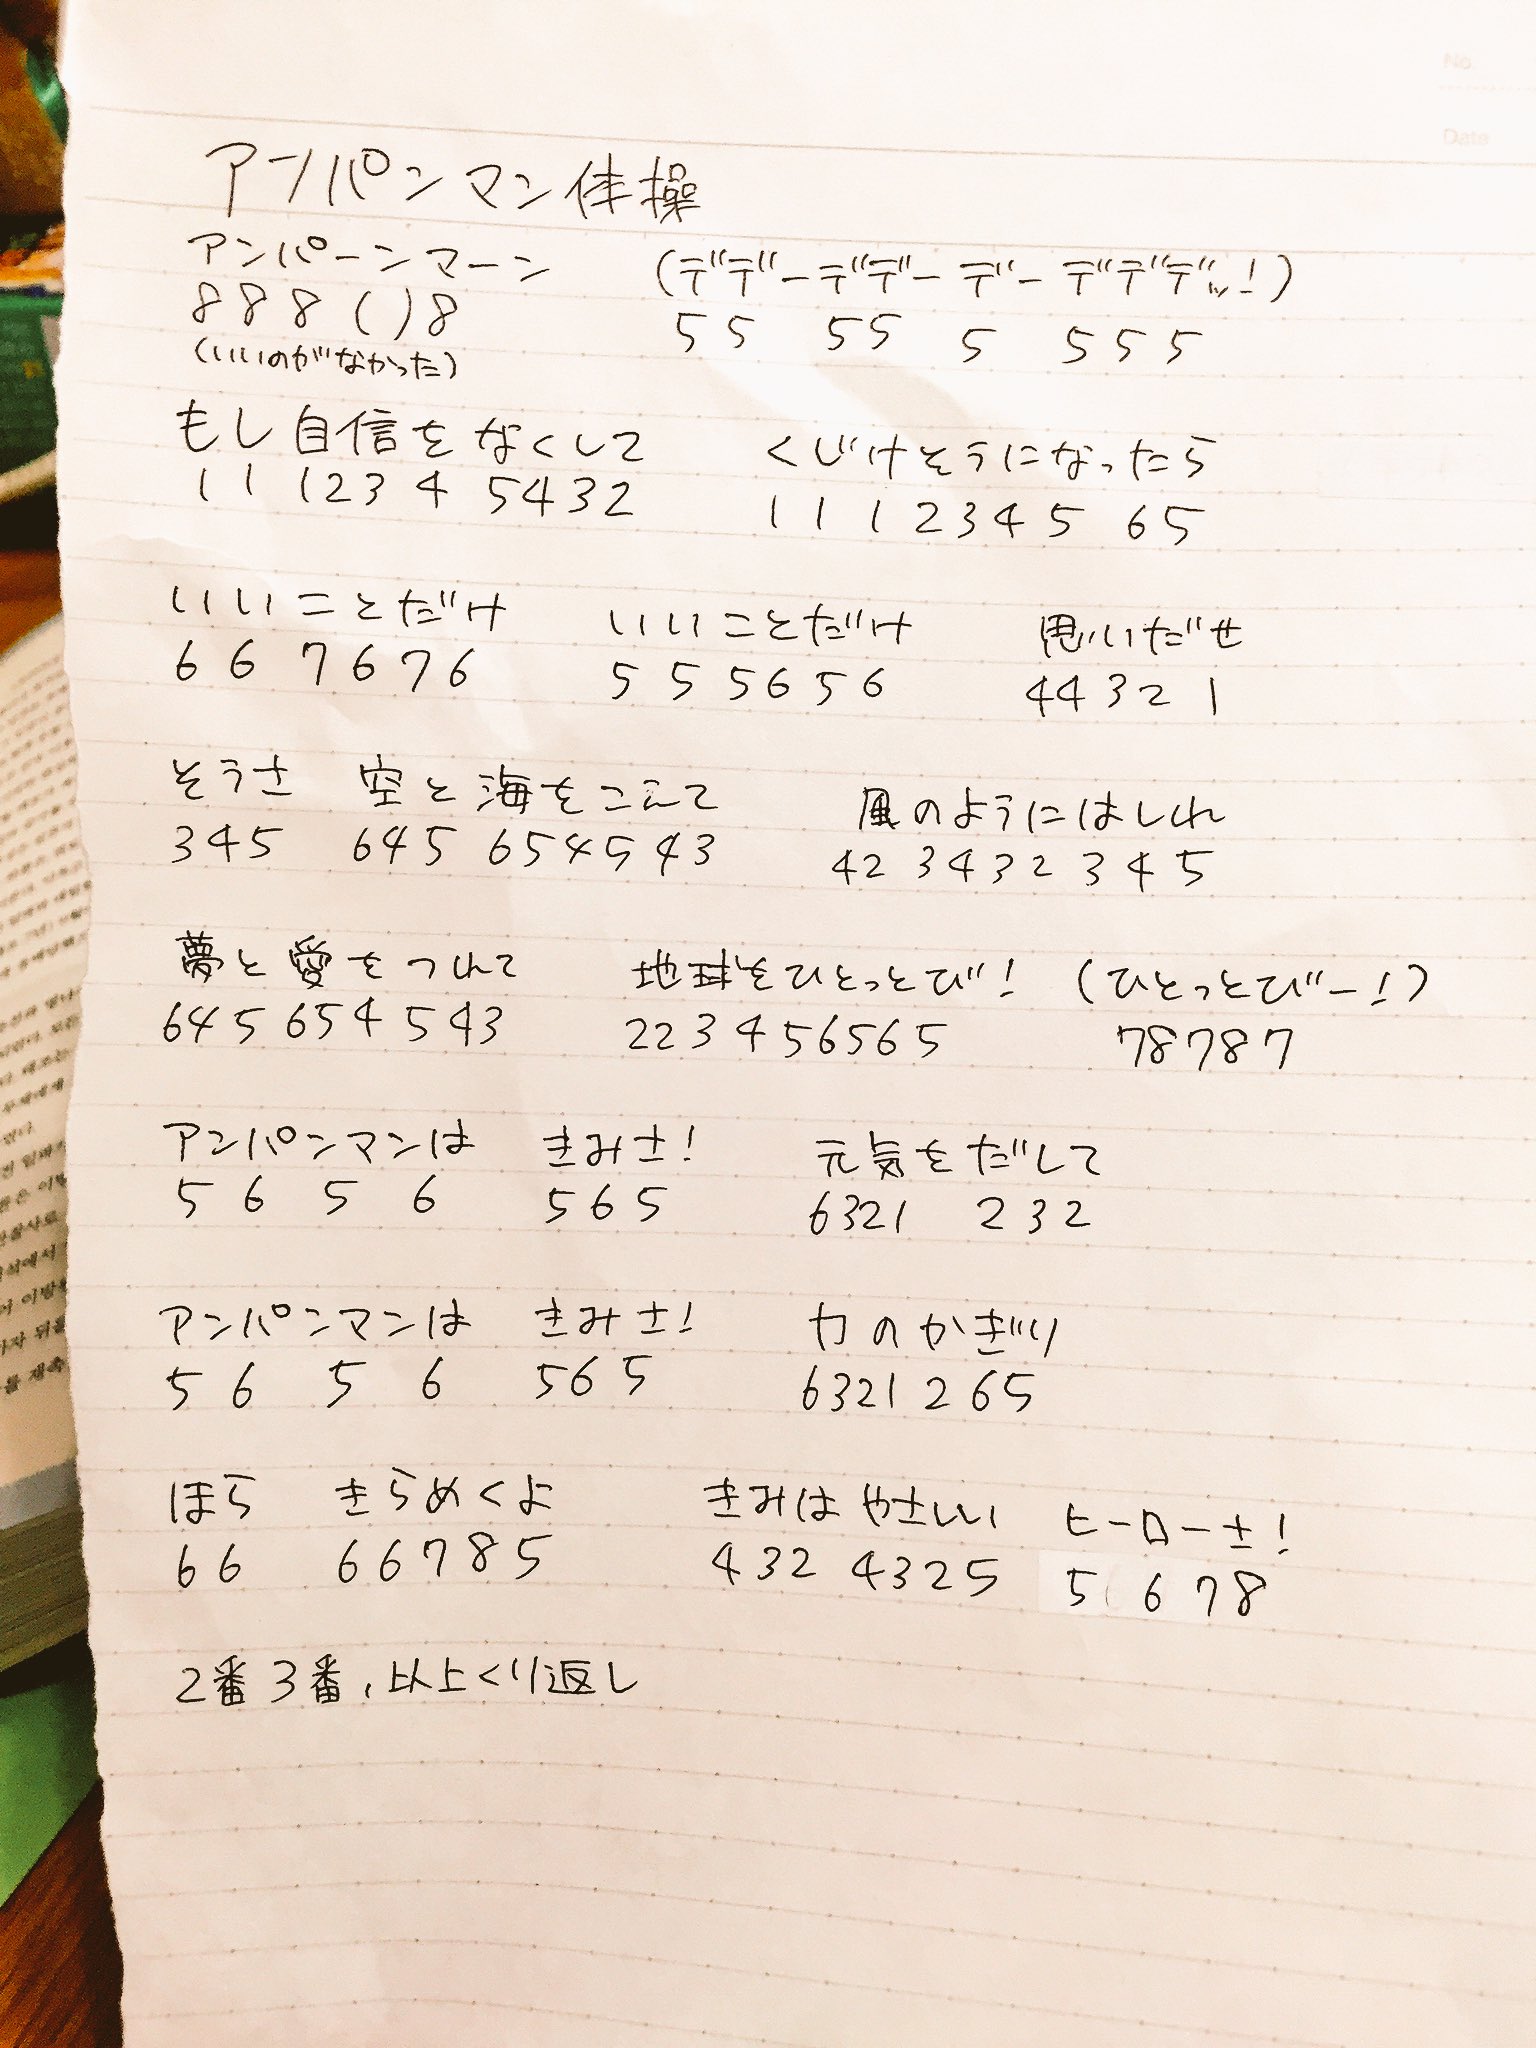 No.
Date
アンパンマン体操
アンパーンマーン (デデーデデーデーデデデッ!)
8 8 8 ( ) 8 5 5 5 5 5 5 5 5
(いいのがなかった)
もし自信をなくして くじけそうになったら
1 1 1 2 3 4 5 4 3 2 1 1 1 2 3 4 5 6 5
いいことだけ いいことだけ 思いだせ
6 6 7 6 7 6 5 5 5 6 5 6 4 4 3 2 1
そうさ 空と海をこえて 風のようにはしれ
3 4 5 6 4 5 6 5 4 5 4 3 4 2 3 4 3 2 3 4 5
夢と愛をつれて 地球をひとっとび! (ひとっとびー!)
6 4 5 6 5 4 5 4 3 2 2 3 4 5 6 5 6 5 7 8 7 8 7
アンパンマンは きみさ! 元気をだして
5 6 5 6 5 6 5 6 3 2 1 2 3 2
アンパンマンは きみさ! 力のかぎり
5 6 5 6 5 6 5 6 3 2 1 2 6 5
ほら きらめくよ きみは やさしい ヒーローさ!
6 6 6 6 7 8 5 4 3 2 4 3 2 5 5 6 7 8
2番3番、以上くり返し